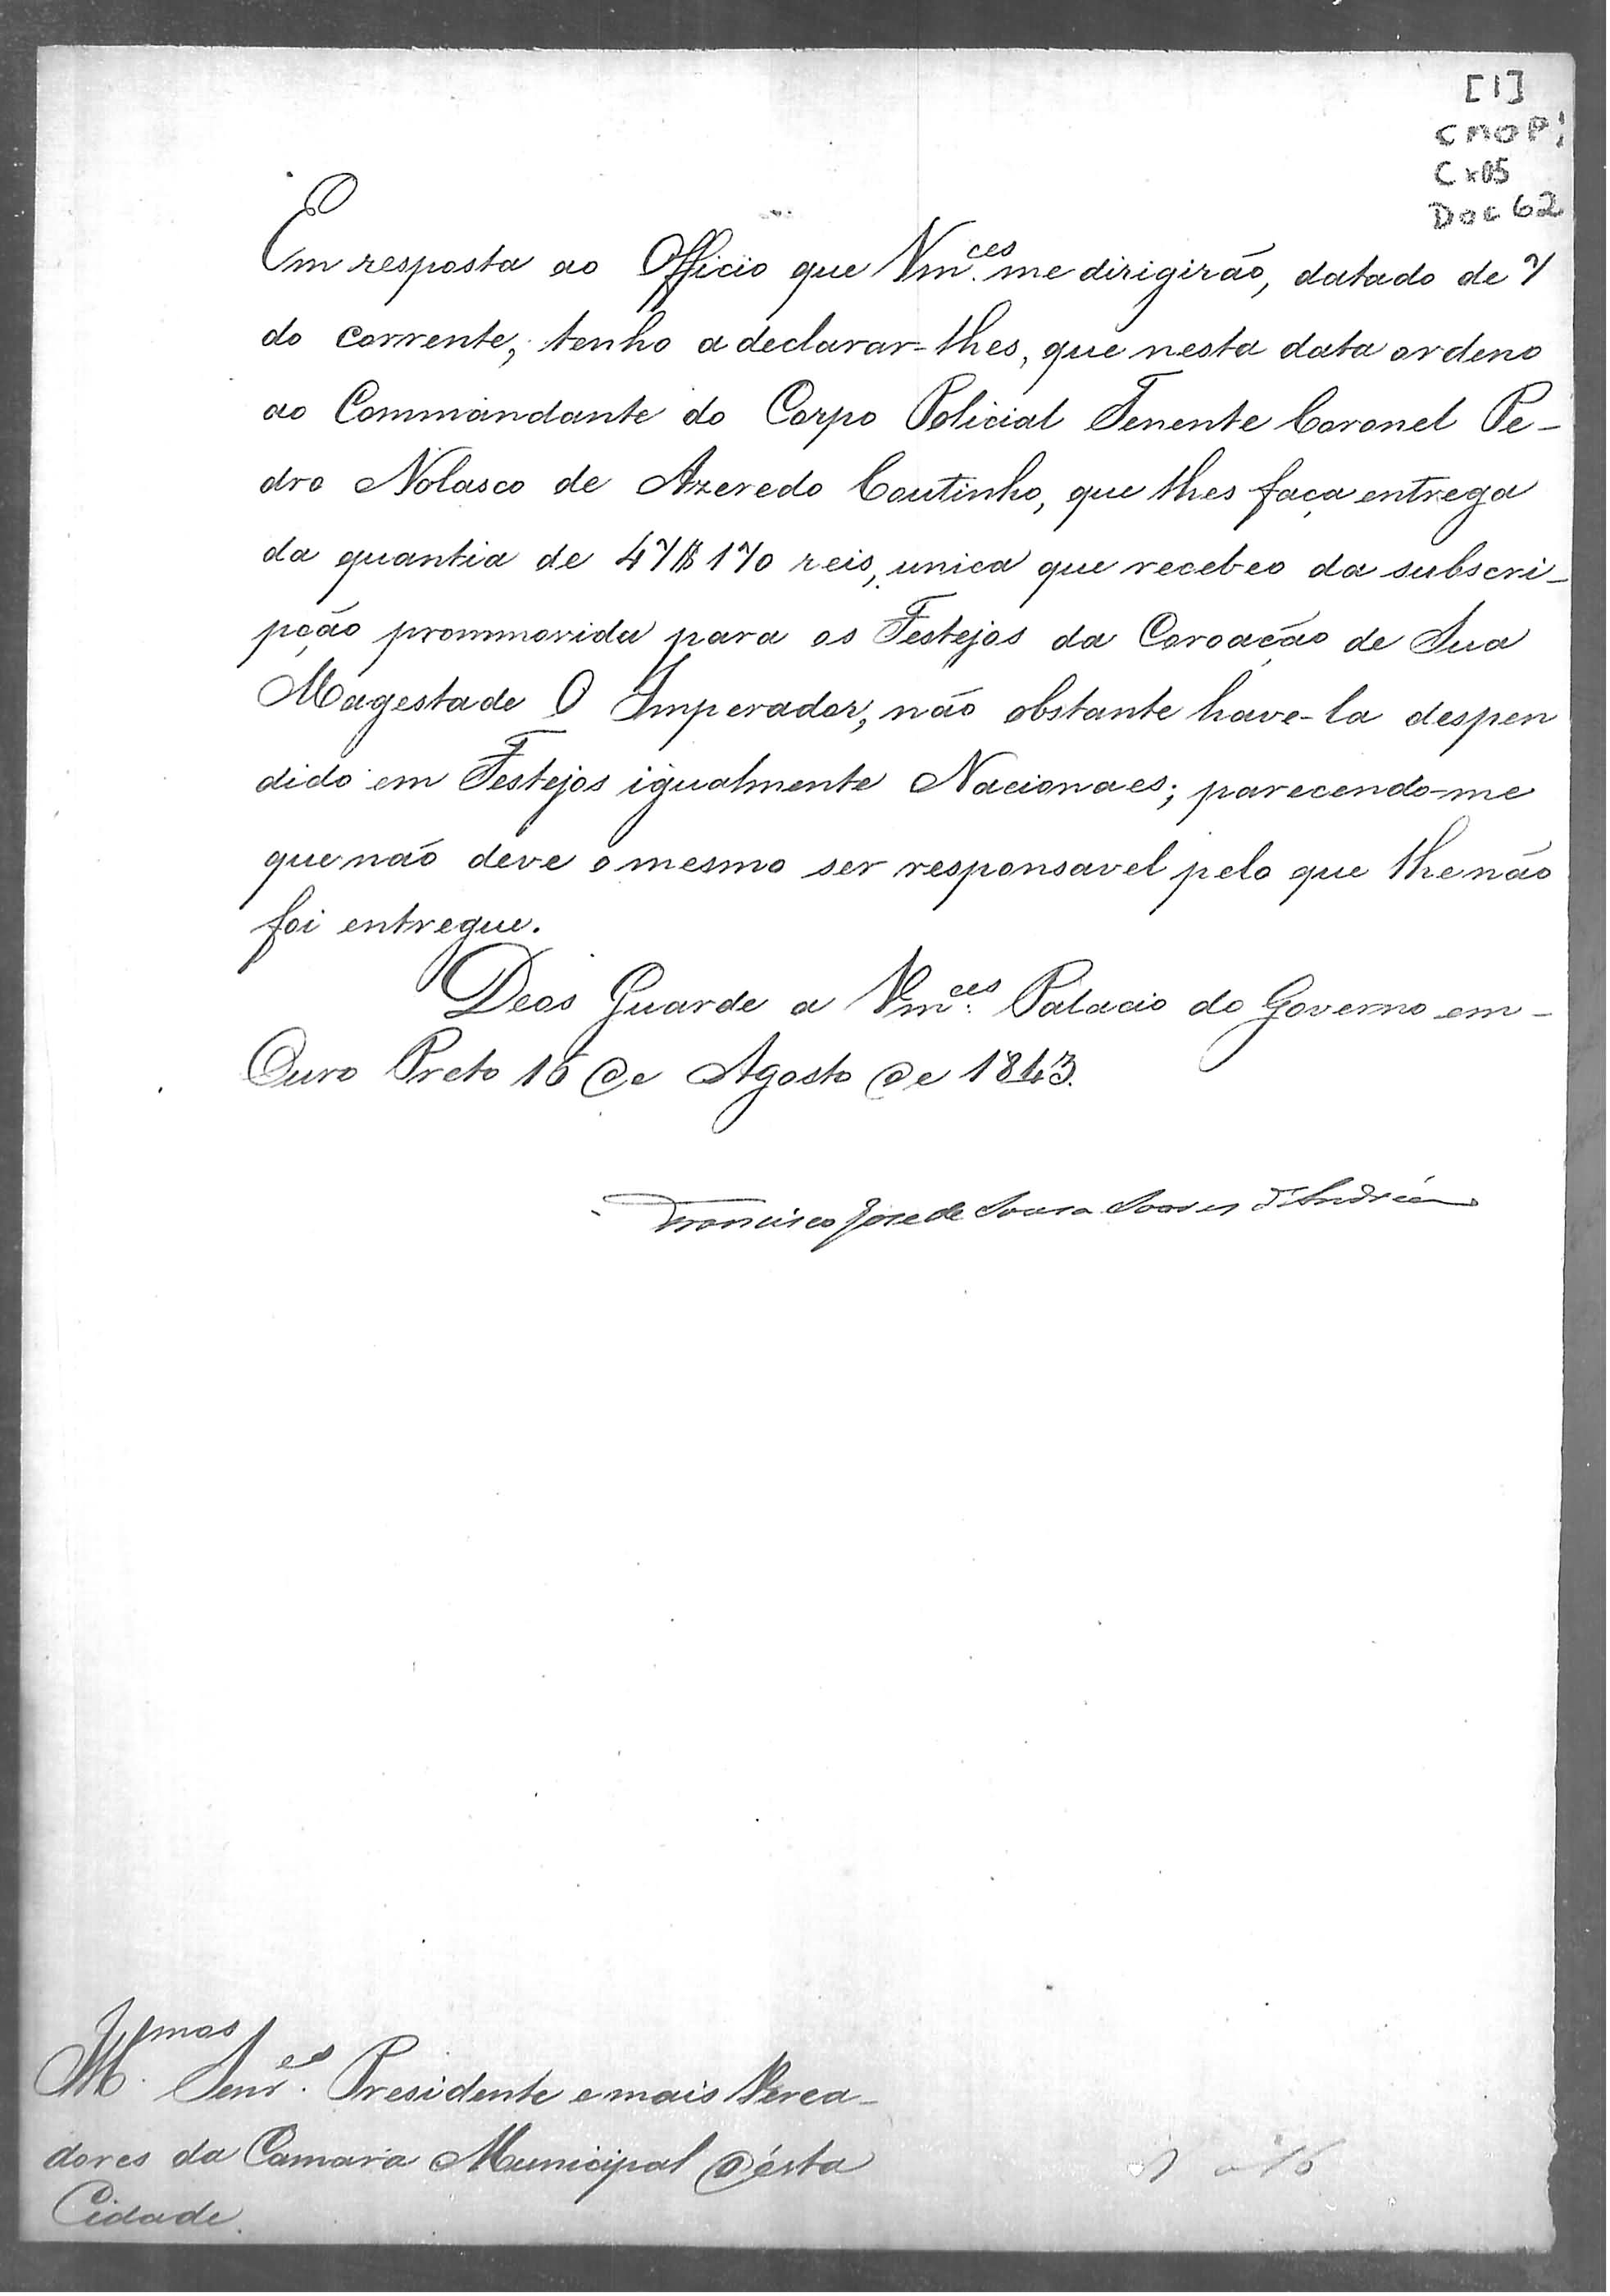 [1]
CMOP
Cx05
Doc 62
Em resposta ao Officio que Vm.ces me dirigirão, datado de 7
do corrente, tenho a declarar-lhes, que nesta data ordeno
ao Commandante do Corpo Policial Tenente Coronel Pe-
dro Nolasco de Azeredo Coutinho, que lhes faça entrega
da quantia de 47$170 reis, unica que recebeo da subscri-
pção prommovida para os Festejos da Coroação de Sua
Magestade O Imperador, não obstante have-la despen
dido em Festejos igualmente Nacionaes; parecendo-me
que não deve o mesmo ser responsavel pelo que lhe não
foi entregue.
Deos Guarde a Vm.ces Palacio do Governo em
Ouro Preto 16 de Agosto de 1843.
Francisco Jose de Souza Soares d'Andréa
Senr.es Presidente e mais Verea-
dores da Camara Municipal d'esta
Cidade.